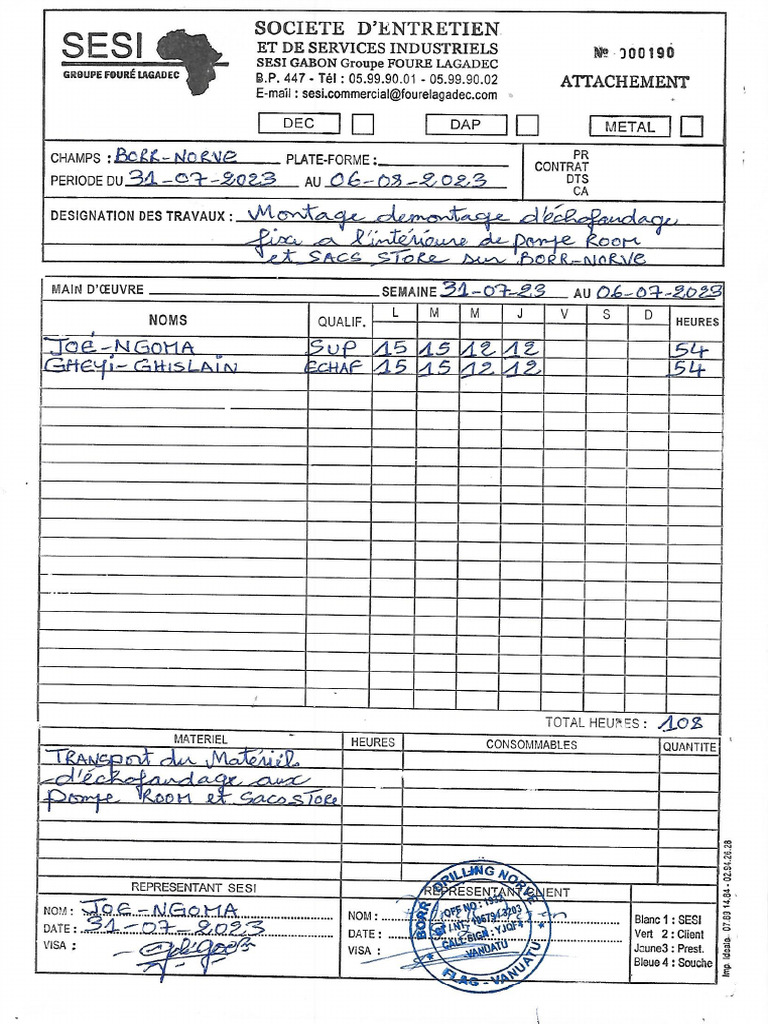 SESI
GROUPE FOURÉ LAGADEC
SOCIETE D'ENTRETIEN
ET DE SERVICES INDUSTRIELS
SESI GABON Groupe FOURE LAGADEC
B.P. 447 - Tél : 05.99.90.01 - 05.99.90.02
E-mail : sesi.commercial@fourelagadec.com
№ 000190
ATTACHEMENT
DEC DAP METAL
CHAMPS : BORR-NORVE PLATE-FORME :
PERIODE DU 31-07-2023 AU 06-08-2023
PR
CONTRAT
DTS
CA
DESIGNATION DES TRAVAUX : Montage demontage d'échofandage
fixi a l'intérieure de pompe ROOM
et SACS STORE sur BORR-NORVE
MAIN D'ŒUVRE SEMAINE 31-07-23 AU 06-07-2023
NOMS QUALIF. L M M J V S D HEURES
JOÉ-NGOMA SUP 15 15 12 12 54
GHEYI-GHISLAIN ECHAF 15 15 12 12 54
TOTAL HEURES : 108
MATERIEL HEURES CONSOMMABLES QUANTITE
TRANSPORT du Matériel
d'échofandage aux
pompe ROOM et SACS STORE
REPRESENTANT SESI
NOM : JOE-NGOMA
DATE : 31-07-2023
VISA :
REPRESENTANT CLIENT
NOM :
DATE :
VISA :
BORR DRILLING NORVE
OFF NO : 1992
CALL-SIGN : YJQF
-VANUATU
FLAG - VANUATU
Blanc 1 : SESI
Vert 2 : Client
Jaune3 : Prest.
Bleue 4 : Souche